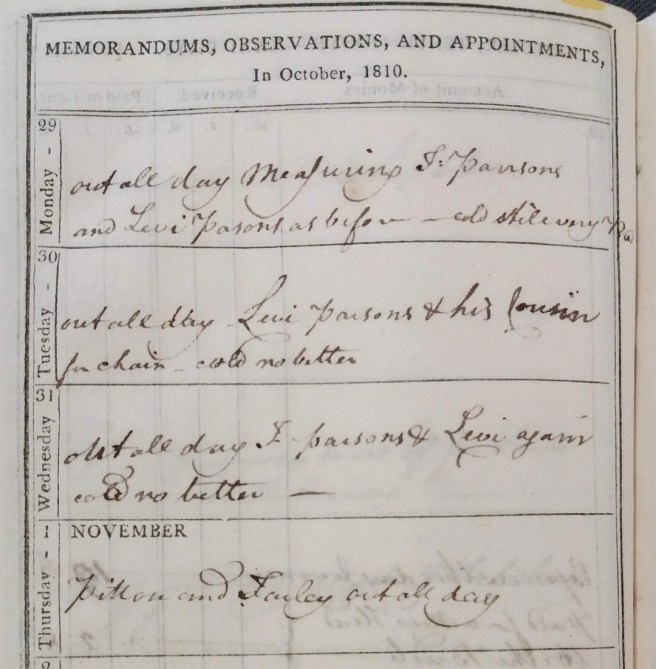 MEMORANDUMS, OBSERVATIONS, AND APPOINTMENTS,
In October, 1810.
29
Monday -
out all day Measuring J: Parsons
and Levi Parsons as before — cold still very Bad
30
Tuesday -
out all day Levi Parsons & his Cousin
for chain - cold no better
31
Wednesday
out all day J parsons & Levi again
cold no better —
1 NOVEMBER
Thursday -
and Farley out all day
2